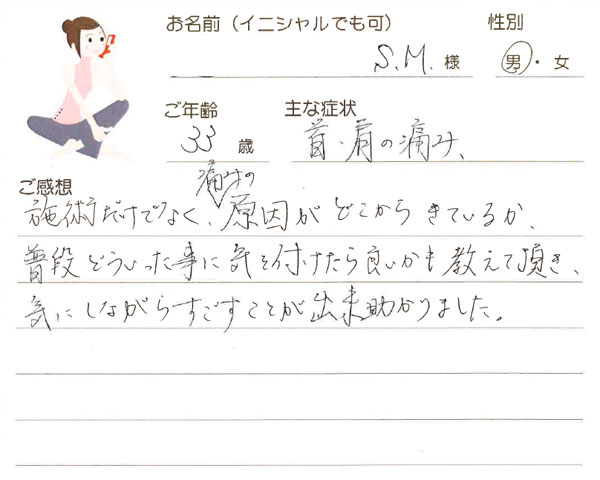 お名前（イニシャルでも可） 性別
S.M. 様 男・女
ご年齢 主な症状
33 歳 首・肩の痛み、
ご感想
痛みの
施術だけでなく、原因がどこからきているか、
普段どういった事に気を付けたら良いかも教えて頂き、
気にしながらすごすことが出来助かりました。